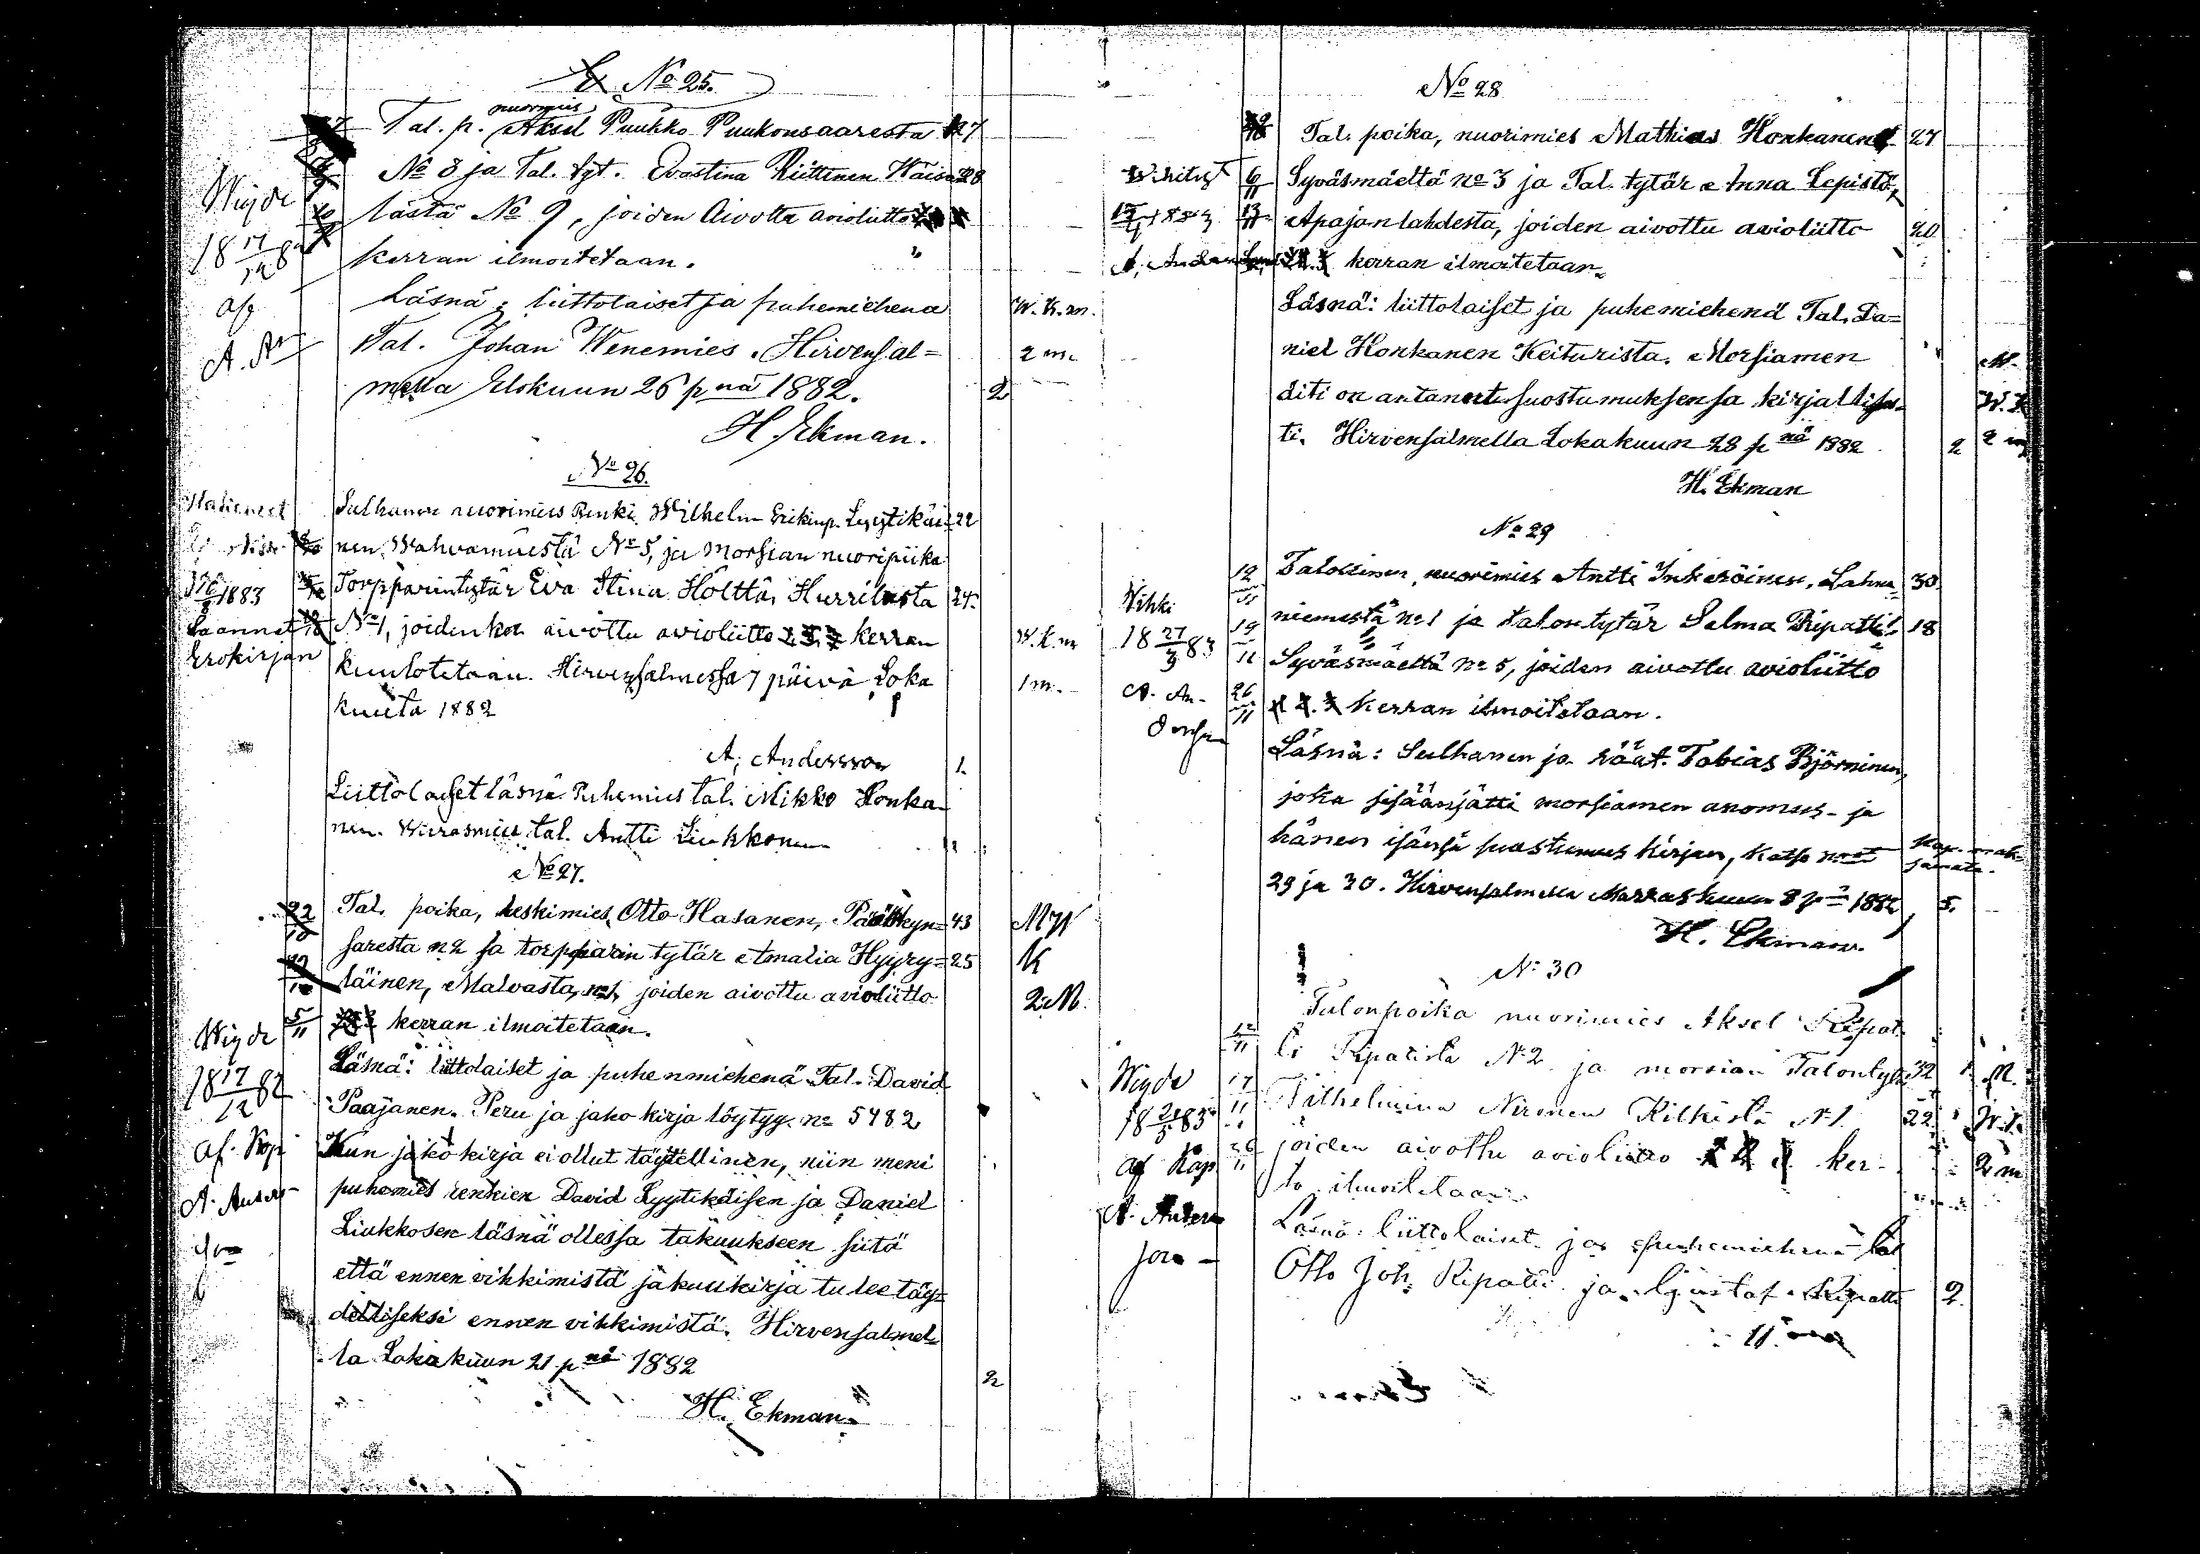 No 25.
Tal. p. nuormies Aksel Puukko Puukonsaaresta 27
No 8 ja Tal. tyt. Evastina Riittinen Wäisä- 28
lästä No 9, joiden Aivottu avioliitto
kerran ilmoitetaan.
Läsnä: liittolaiset ja puhemiehenä
Tal. Johan Wenemies. Hirvensal=
mella Elokuun 26 p nä 1882. 2
H. Ekman.
Wigde
18 17/12 82
af
A. An
W. K. m.
2 m.
No 26.
Sulhanen nuorimies Renki Wilhelm Erikinp. Lyytikäi- 22
nen Wahvamäestä No 5, ja morsian nuoripiika
Torpparintytär Eva Stina Hölttä, Hurrilasta 24.
No 1, joiden aivottu avioliitto 1. 2. 3 kerran
kuulotetaan. Hirvensalmessa 7 päivä Loka
kuuta 1882
A. Andersson 1.
Liittolaiset läsnä. Puhemies tal. Mikko Honka-
nen. Wierasmies tal. Antti Liukkonen
1883
Saanut
Erokirjan
W. k. m
1 m.
No 27.
Tal. poika, leskimies Otto Hasanen, Pääskyn= 43
saresta n 2 ja torpparin tytär Amalia Hyyry= 25
läinen, Malvasta, n 1, joiden aivottu avioliitto
kerran ilmoitetaan.
Läsnä: liittolaiset ja puhenmiehenä Tal. David
Paajanen. Peru ja jako kirja löytyy. no 5482
Kun jako kirja ei ollut täytellinen, niin meni
puhemies renkien David Lyytikäisen ja Daniel
Liukkosen läsnä ollessa takuukseen siitä
että ennen vihkimistä jakuukirja tulee täy=
delliseksi ennen vihkimistä. Hirvensalmel=
la Lokakuun 21 p nä 1882 2
H. Ekman.
Wigde
18 17/12 82
af. Kap
A. Anders-
son
M W
K
2 M.
No 28
Tal. poika, nuorimies Mathias Honkanen 27
Syväsmäeltä no 3 ja Tal. tytär Anna Lepistö,
Apajanlahdesta, joiden aivottu avioliitto 20
kerran ilmoitetaan.
Läsnä: liittolaiset ja puhemiehenä Tal. Da=
niel Honkanen Keiturista. Morsiamen
äiti on antanut suostumuksensa kirjallises-
ti. Hirvensalmella Lokakuun 28 p nä 1882 2
H. Ekman
Wihityt
No 29
Talollinen, nuorimies Antti Inkeröinen, Lahna= 30
niemestä no 1 ja talontytär Selma Ripatti 18
Syväsmäeltä no 5, joiden aivottu avioliitto
1. 2. 3 kerran ilmoitetaan.
Läsnä: Sulhanen ja räät. Tobias Björninen,
joka sisäänjätti morsiamen anomus- ja
hänen isänsä suostumus kirjan, katso
29 ja 30. Hirvensalmella Marraskuun 8 p nä 1882 5.
H. Ekman.
Vihki
18 27/3 83
A. An-
dersson
12/11
19/11
26/11
No 30
Talonpoika nuorimies Aksel Ripat-
ti Ripatista No 2 ja morsian Talontytär 32
Wilhelmina Nironen Kilkistä No 1. 22
joiden aivottu avioliitto 1 2 3 ker-
ta ilmoitetaan.
Läsnä: liittolaiset ja puhemiehenä tal
Otto Joh. Ripatti ja Gustaf Ripatti 2.
Wigde
af Kap
A. Anders
son -
2 m